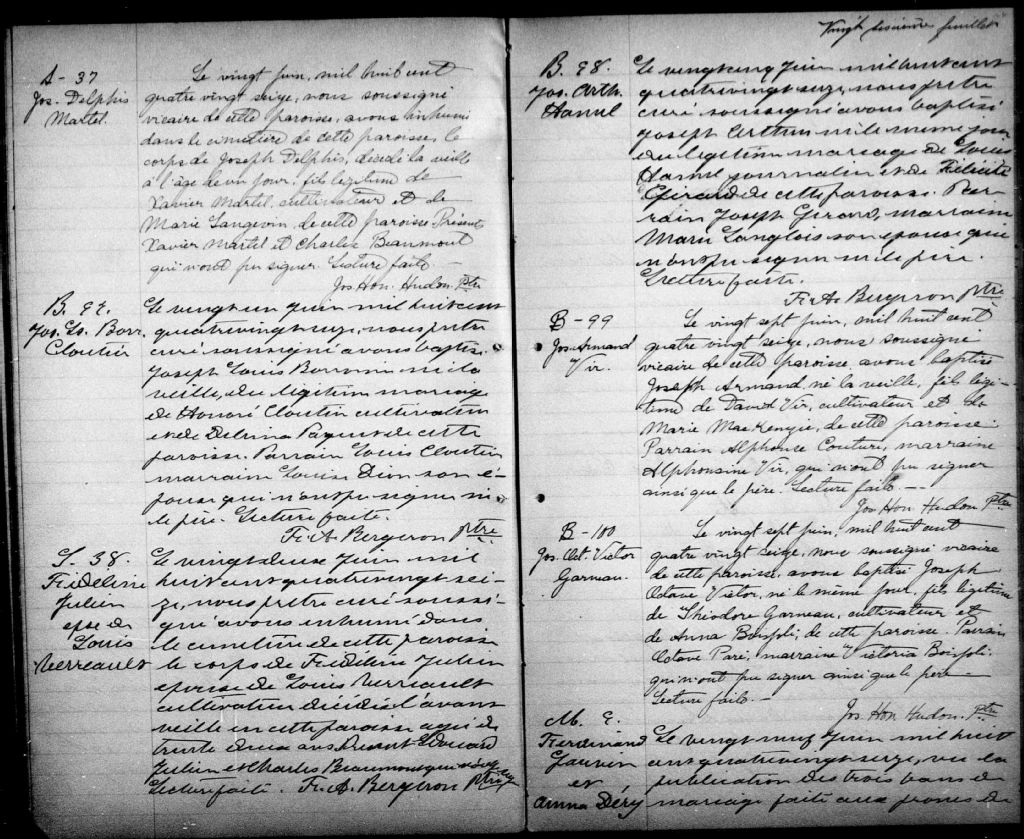 S-37
Jos. Delphis
Martel.
Le vingt juin, mil huit cent
quatre vingt seize, nous soussigné
vicaire de cette paroisse, avons inhumé
dans le cimetière de cette paroisse, le
corps de Joseph Delphis, décédé la veille
à l'âge de un jour, fils légitime de
Xavier Martel, cultivateur et de
Marie Langevin, de cette paroisse. Présents
Xavier Martel et Charles Beaumont
qui n'ont pu signer. Lecture faite. —
Jos. Hon. Hudon. Ptre
B. 97.
Jos. Ls. Borr.
Cloutier
Le vingt un Juin mil huit cent
quatre vingt seize, nous prêtre
curé soussigné avons baptisé
Joseph Louis né la
veille, du légitime mariage
de Honoré Cloutier cultivateur
et de Paquet de cette
paroisse. Parrain Louis Cloutier
marraine Louise Dion son é-
pouse qui n'ont pu signer ni
le père. Lecture faite.
Fr. A. Bergeron Ptre
S. 38.
Fidéline
Julien
épse de
Louis
Verreault
Le vingt deux Juin mil
huit cent quatre vingt sei-
ze, nous prêtre curé soussi-
gné avons inhumé dans
le cimetière de cette paroisse
le corps de Fidéline Julien
épouse de Louis Verreault
cultivateur décédée l'avant
veille en cette paroisse agée de
trente deux ans. Présent Edouard
Julien et Charles Beaumont qui
Lecture faite. Fr. A. Bergeron Ptre
Vingt feuillet
B. 98.
Jos. Arth.
Hamel
Le vingt cinq Juin mil huit cent
quatre vingt seize, nous prêtre
curé, soussigné avons baptisé
Joseph Arthur né le même jour
du légitime mariage de Louis
Hamel journalier et de Félicité
Girard de cette paroisse. Par-
rain Joseph Girard, marraine
Marie Langlois son épouse qui
n'ont pu signer ni le père.
Lecture faite.
Fr. A. Bergeron Ptre
B-99
Jos. Armand
Vir.
Le vingt sept juin, mil huit cent
quatre vingt seize, nous soussigné
vicaire de cette paroisse avons baptisé
Joseph Armand, né la veille, fils légi-
time de David Vir, cultivateur et de
Marie MacKenzie, de cette paroisse.
Parrain Alphonse Couture, marraine
Alphonsine Vir, qui n'ont pu signer
ainsi que le père. Lecture faite. —
Jos. Hon. Hudon Ptre
B-100
Jos. Oct. Victor
Garneau.
Le vingt sept juin, mil huit cent
quatre vingt seize, nous soussigné vicaire
de cette paroisse, avons baptisé Joseph
Octave Victor, né le même jour, fils légitime
de Théodore Garneau, cultivateur et
de Anna Boisjoli, de cette paroisse. Parrain
Octave Paré, marraine Victoria Boisjoli,
qui n'ont pu signer ainsi que le père —
Lecture faite. —
Jos. Hon. Hudon. Ptre
M.
Ferdinand
Gauvin
et
Anna Déry
Le vingt neuf Juin mil huit
cent quatre vingt seize, vu la
publication des trois bans de
mariage faite aux prônes de